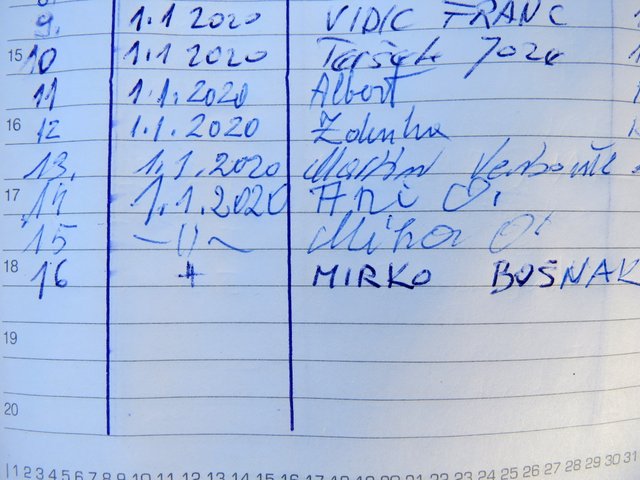 9. 1.1 2020 VIDIC FRANC
15
10 1.1 2020 Jože
11 1.1.2020 Albert
16
12 1.1.2020 Zdenka
13. 1.1.2020 Martin
17
14 1.1.2020 Ani O.
15 —||— Miha O.
18
16 MIRKO BOŠNAK
19
20
1 2 3 4 5 6 7 8 9 10 11 12 13 14 15 16 17 18 19 20 21 22 23 24 25 26 27 28 29 30 31